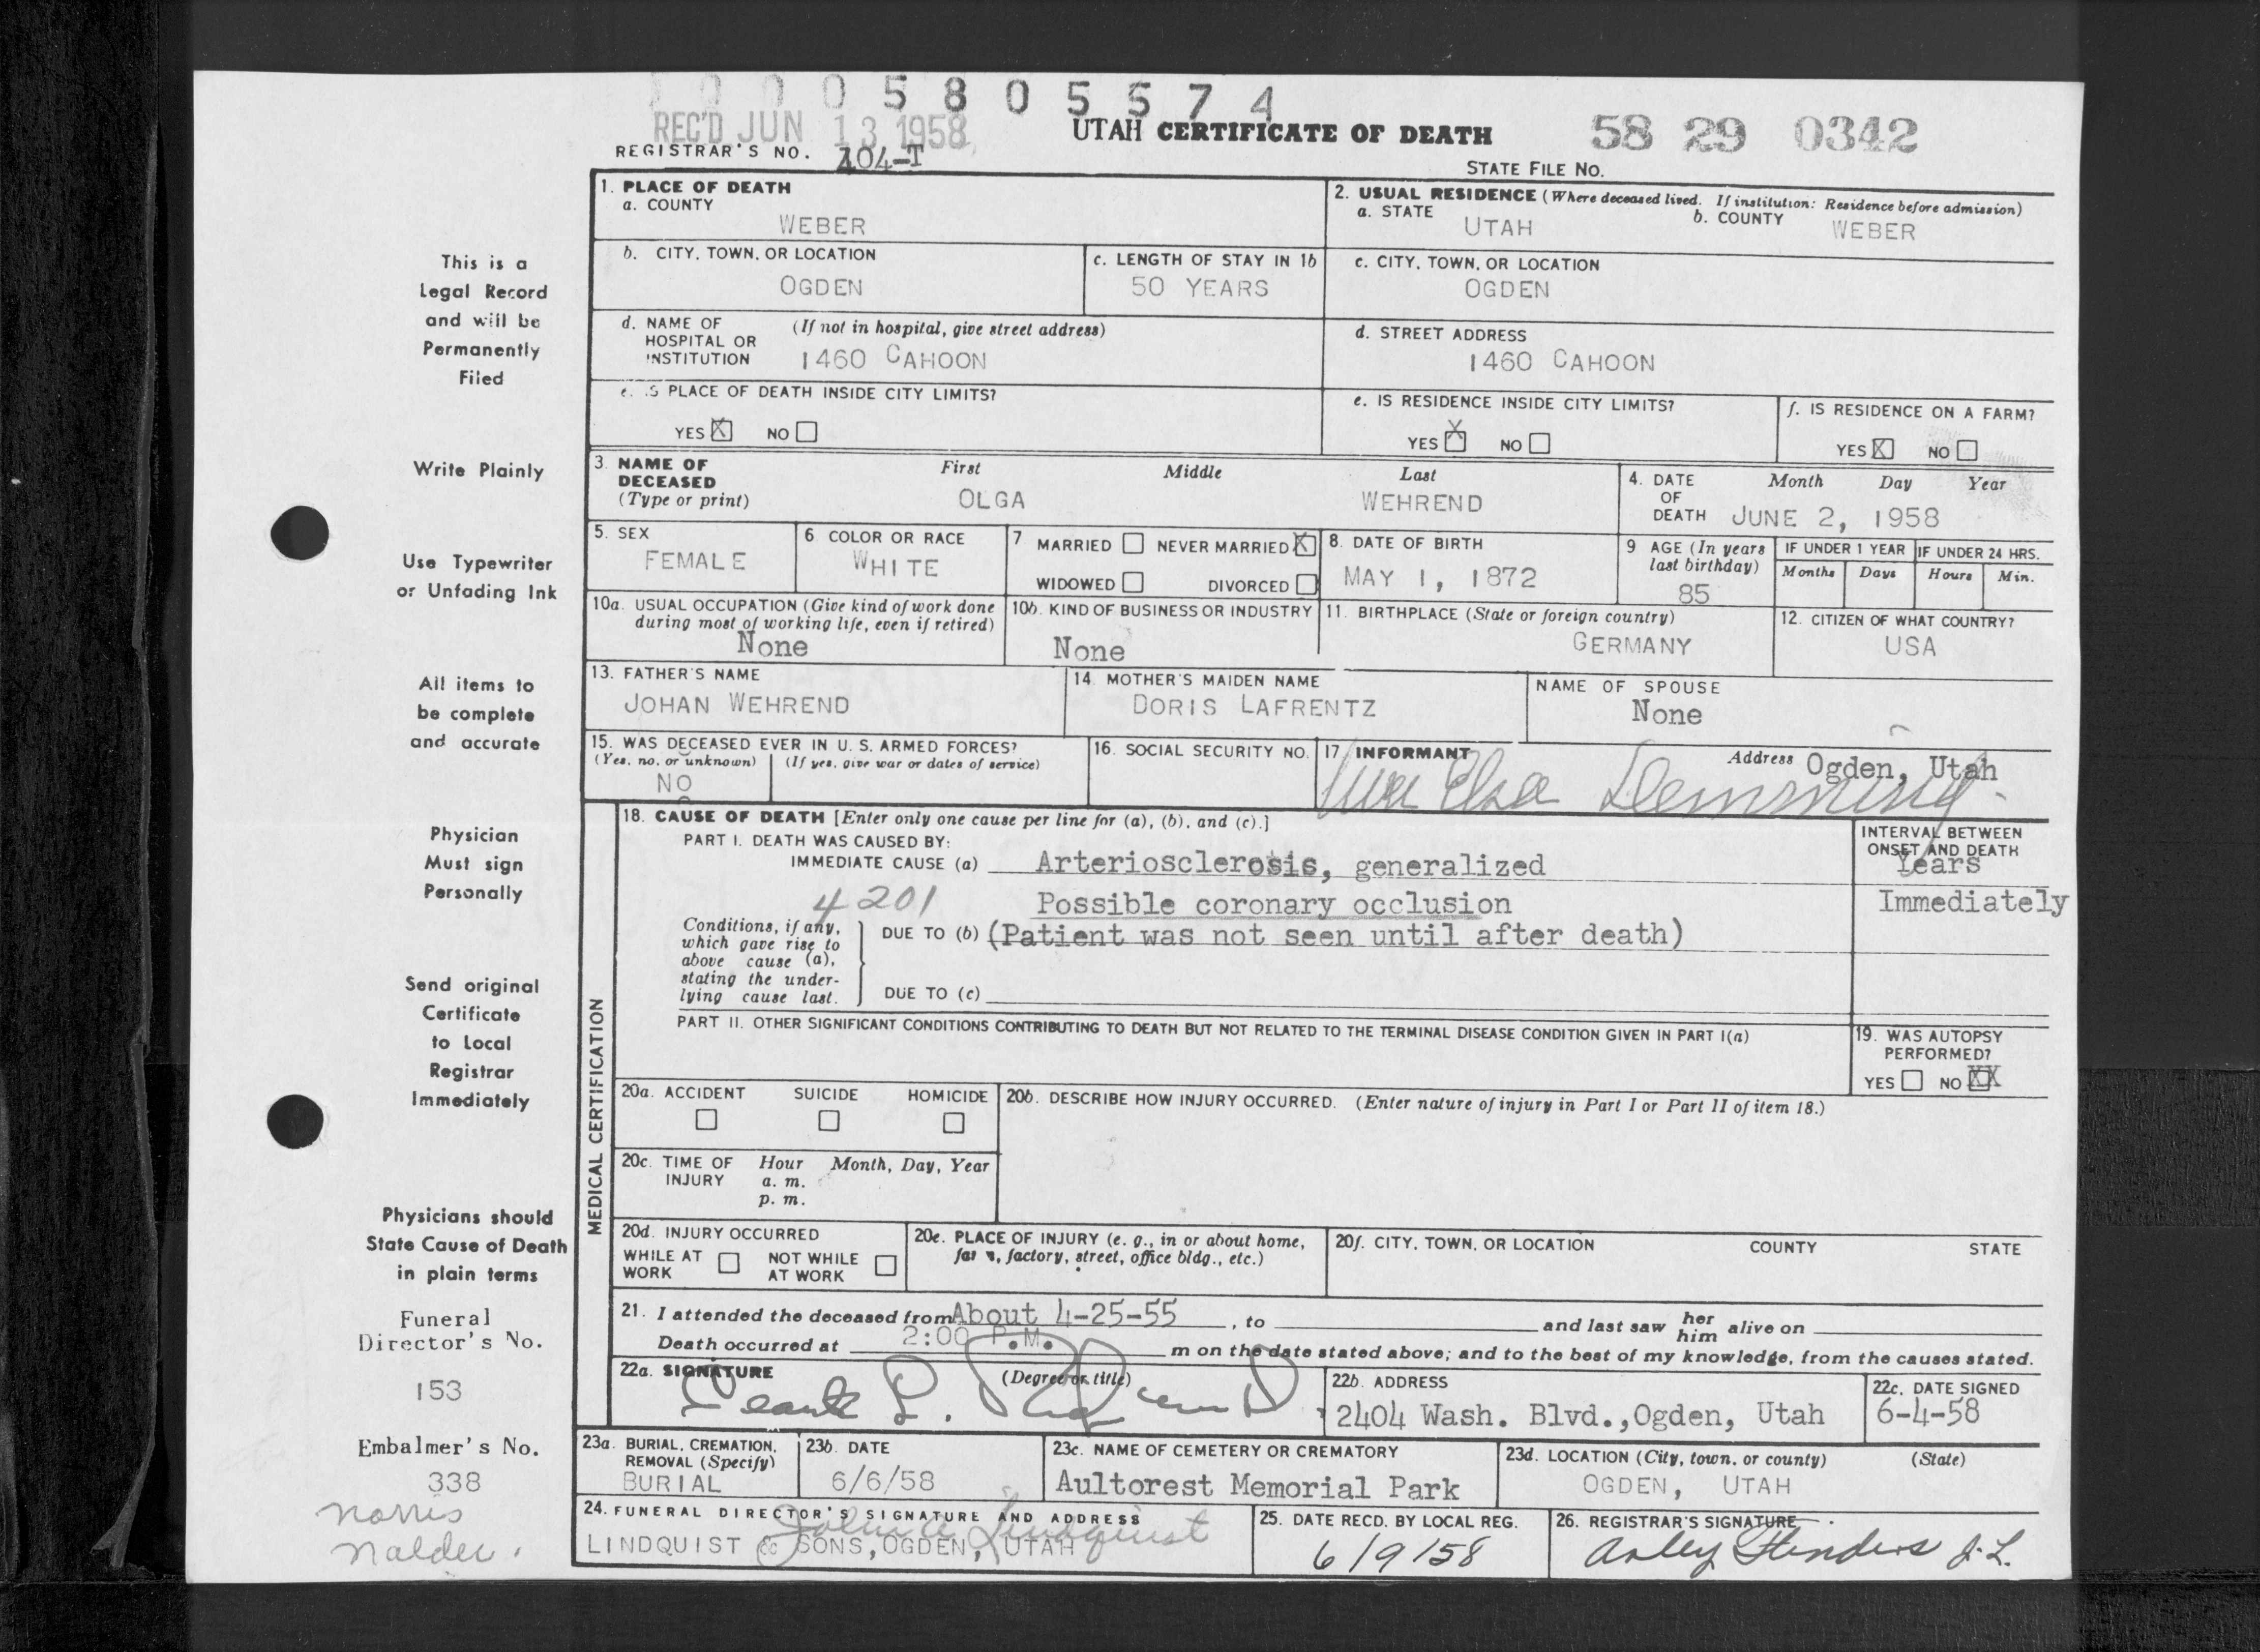 0 0 0 5 8 0 5 5 7 4
REC'D JUN 13 1958
UTAH CERTIFICATE OF DEATH
58 29 0342
REGISTRAR'S NO. 404-T
STATE FILE NO.
This is a
Legal Record
and will be
Permanently
Filed
Write Plainly
Use Typewriter
or Unfading Ink
All items to
be complete
and accurate
Physician
Must sign
Personally
Send original
Certificate
to Local
Registrar
Immediately
Physicians should
State Cause of Death
in plain terms
Funeral
Director's No.
153
Embalmer's No.
338
Norris
Nalder.
1. PLACE OF DEATH
a. COUNTY
WEBER
2. USUAL RESIDENCE (Where deceased lived. If institution: Residence before admission)
a. STATE UTAH b. COUNTY WEBER
b. CITY, TOWN, OR LOCATION
OGDEN
c. LENGTH OF STAY IN 1b
50 YEARS
c. CITY, TOWN, OR LOCATION
OGDEN
d. NAME OF (If not in hospital, give street address)
HOSPITAL OR
INSTITUTION 1460 CAHOON
d. STREET ADDRESS
1460 CAHOON
e. IS PLACE OF DEATH INSIDE CITY LIMITS?
YES X NO
e. IS RESIDENCE INSIDE CITY LIMITS?
YES X NO
f. IS RESIDENCE ON A FARM?
YES X NO
3. NAME OF First Middle Last
DECEASED
(Type or print) OLGA WEHREND
4. DATE Month Day Year
OF
DEATH JUNE 2, 1958
5. SEX
FEMALE
6 COLOR OR RACE
WHITE
7 MARRIED NEVER MARRIED X
WIDOWED DIVORCED
8. DATE OF BIRTH
MAY 1, 1872
9 AGE (In years
last birthday)
85
IF UNDER 1 YEAR IF UNDER 24 HRS.
Months Days Hours Min.
10a. USUAL OCCUPATION (Give kind of work done
during most of working life, even if retired)
None
10b. KIND OF BUSINESS OR INDUSTRY
None
11. BIRTHPLACE (State or foreign country)
GERMANY
12. CITIZEN OF WHAT COUNTRY?
USA
13. FATHER'S NAME
JOHAN WEHREND
14. MOTHER'S MAIDEN NAME
DORIS LAFRENTZ
NAME OF SPOUSE
None
15. WAS DECEASED EVER IN U. S. ARMED FORCES?
(Yes, no, or unknown) (If yes, give war or dates of service)
NO
16. SOCIAL SECURITY NO.
17. INFORMANT Address Ogden, Utah
Elsa Demming
18. CAUSE OF DEATH [Enter only one cause per line for (a), (b), and (c).]
PART I. DEATH WAS CAUSED BY:
IMMEDIATE CAUSE (a) Arteriosclerosis, generalized
INTERVAL BETWEEN
ONSET AND DEATH
Years
4201 Possible coronary occlusion Immediately
Conditions, if any,
which gave rise to
above cause (a),
stating the under-
lying cause last.
DUE TO (b) (Patient was not seen until after death)
DUE TO (c)
PART II. OTHER SIGNIFICANT CONDITIONS CONTRIBUTING TO DEATH BUT NOT RELATED TO THE TERMINAL DISEASE CONDITION GIVEN IN PART I(a)
19. WAS AUTOPSY
PERFORMED?
YES NO XX
MEDICAL CERTIFICATION
20a. ACCIDENT SUICIDE HOMICIDE
20b. DESCRIBE HOW INJURY OCCURRED. (Enter nature of injury in Part I or Part II of item 18.)
20c. TIME OF Hour Month, Day, Year
INJURY a. m.
p. m.
20d. INJURY OCCURRED
WHILE AT NOT WHILE
WORK AT WORK
20e. PLACE OF INJURY (e. g., in or about home,
farm, factory, street, office bldg., etc.)
20f. CITY, TOWN, OR LOCATION COUNTY STATE
21. I attended the deceased from About 4-25-55, to and last saw her him alive on
Death occurred at 2:00 P.M. m on the date stated above; and to the best of my knowledge, from the causes stated.
22a. SIGNATURE (Degree or title)
22b. ADDRESS
2404 Wash. Blvd.,Ogden, Utah
22c. DATE SIGNED
6-4-58
23a. BURIAL, CREMATION,
REMOVAL (Specify)
BURIAL
23b. DATE
6/6/58
23c. NAME OF CEMETERY OR CREMATORY
Aultorest Memorial Park
23d. LOCATION (City, town, or county) (State)
OGDEN, UTAH
24. FUNERAL DIRECTOR'S SIGNATURE AND ADDRESS
John A Lindquist
LINDQUIST & SONS, OGDEN, UTAH
25. DATE RECD. BY LOCAL REG.
6/9/58
26. REGISTRAR'S SIGNATURE
J.L.